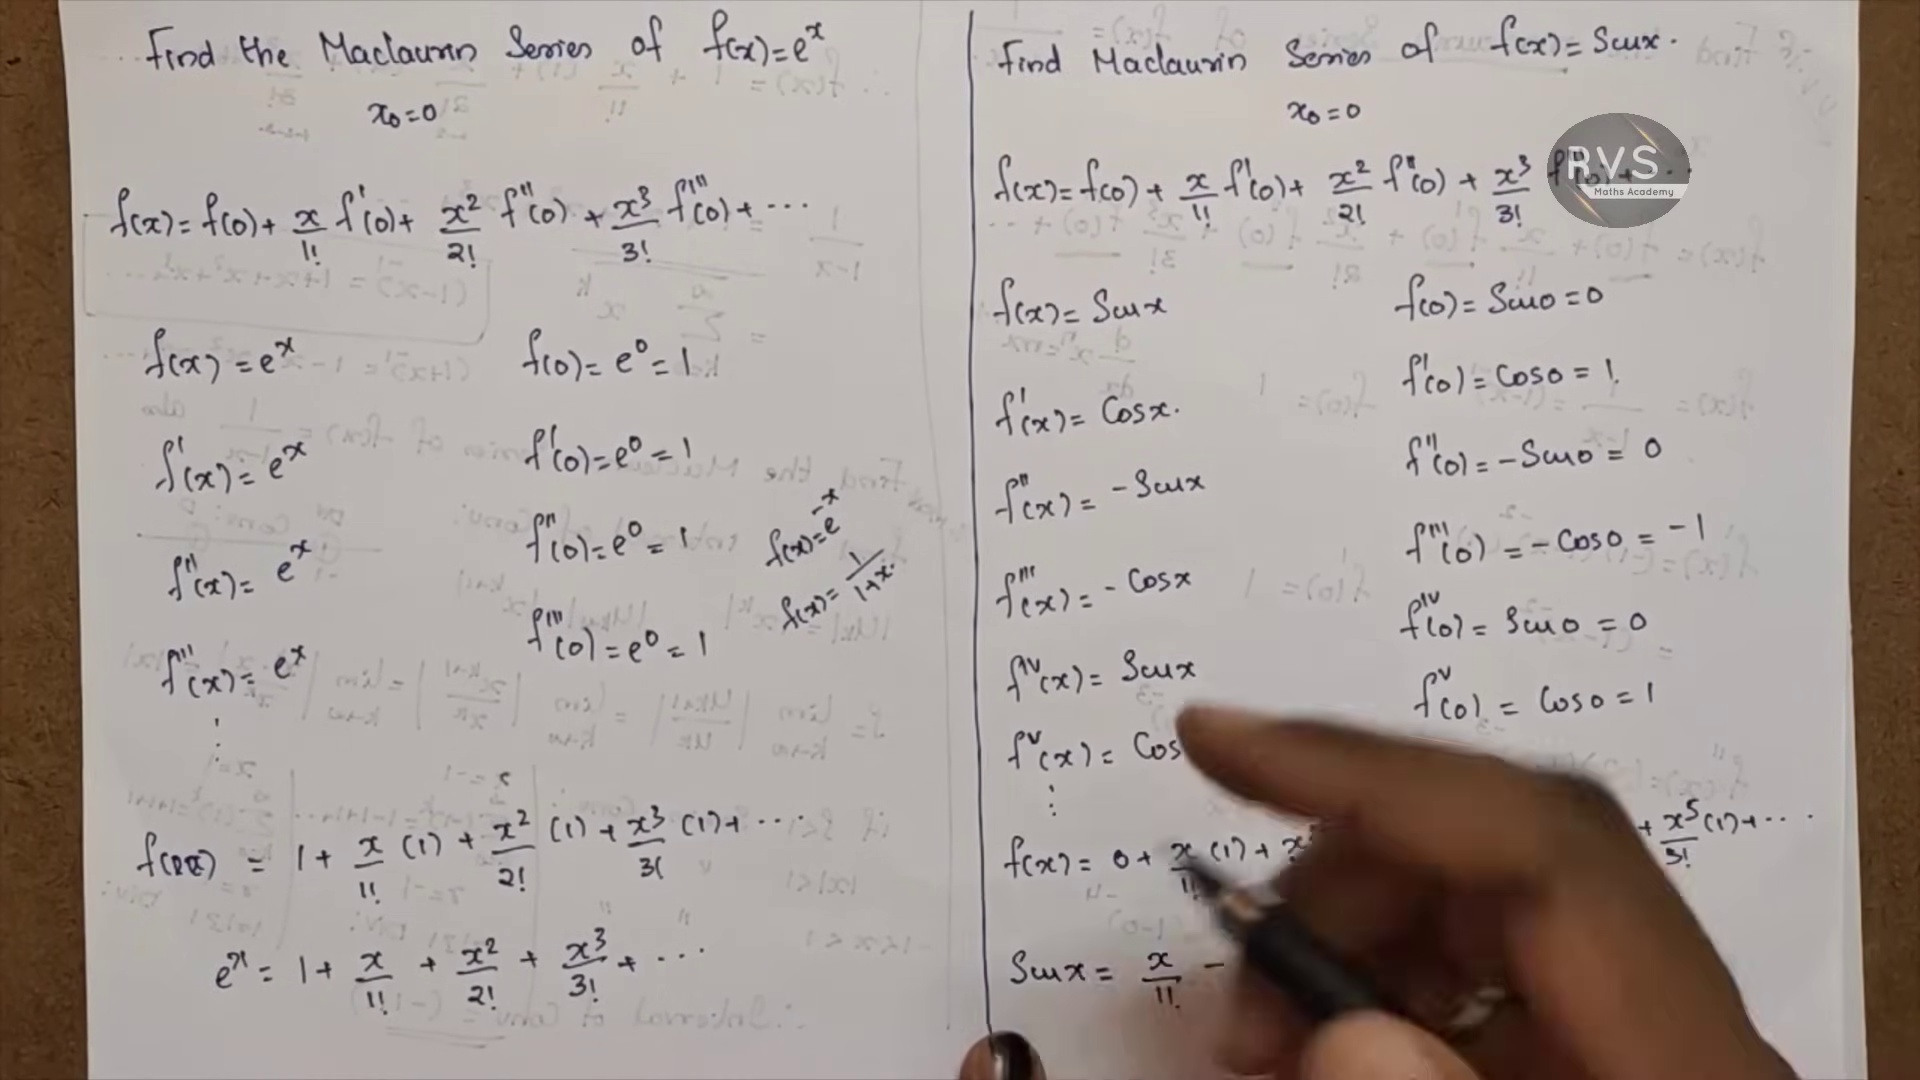 Find the Maclaurin Series of f(x)=e^x
x₀=0
f(x)= f(0)+ x/1! f'(0)+ x²/2! f''(0) + x³/3! f'''(0)+ ...
f(x)=e^x f(0)= e⁰=1
f'(x)= e^x f'(0)=e⁰=1
f''(x)= e^x f''(0)=e⁰=1
f(x)=e^-x
f(x)= 1/1+x.
f'''(x)= e^x f'''(0)=e⁰=1
= 1+ x/1! (1)+ x²/2! (1)+ x³/3! (1)+ ...
e^x = 1+ x/1! + x²/2! + x³/3! + ...
Find Maclaurin Series of f(x)= Sinx.
x₀=0
f(x)= f(0)+ x/1! f'(0)+ x²/2! f''(0) + x³/3!
RVS
Maths Academy
f(x)= Sinx f(0)= Sin0=0
f'(x)= Cosx. f'(0)= Cos0=1.
f''(x)= -Sinx f''(0)=-Sin0=0
f'''(x)=-Cosx f'''(0)=-Cos0=-1
f^iv(x)= Sinx f^iv(0)= Sin0=0
f^v(x)= Cos f^v(0)= Cos0=1
f(x)= 0+ x/1! (1)+ + x⁵/3! (1)+ ...
Sinx= x/1! -